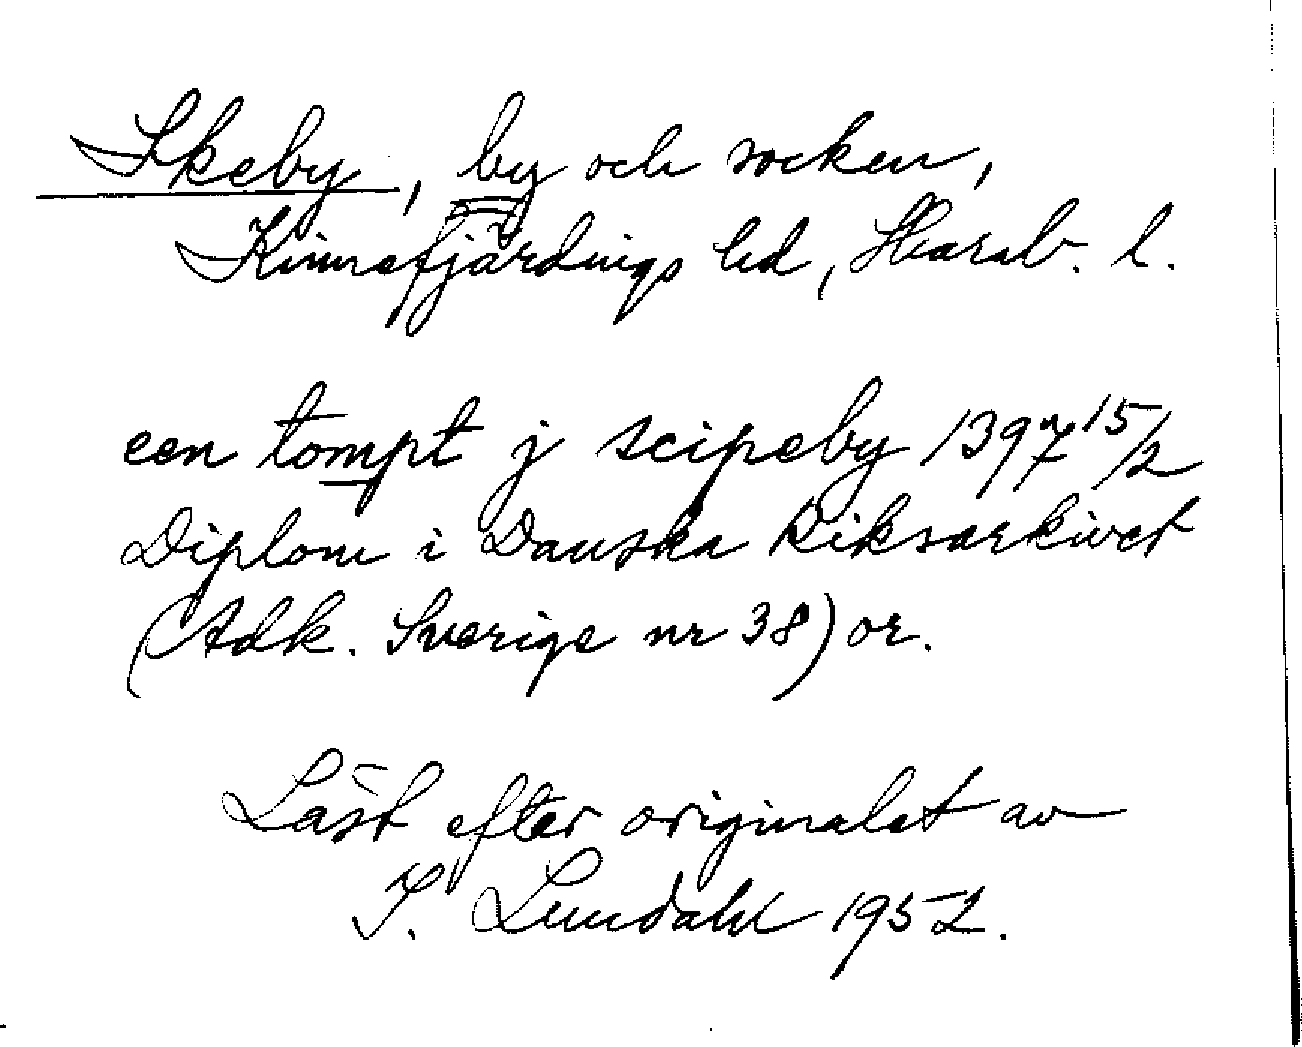 Skeby, by och socken,
Kinnefjärdings hd, Skarab. l.
een tompt j scipeby 1397 15/2
Diplom i Danska Riksarkivet
(Adk. Sverige nr 38) or.
Läst efter originalet av
I. Lundahl 1952.